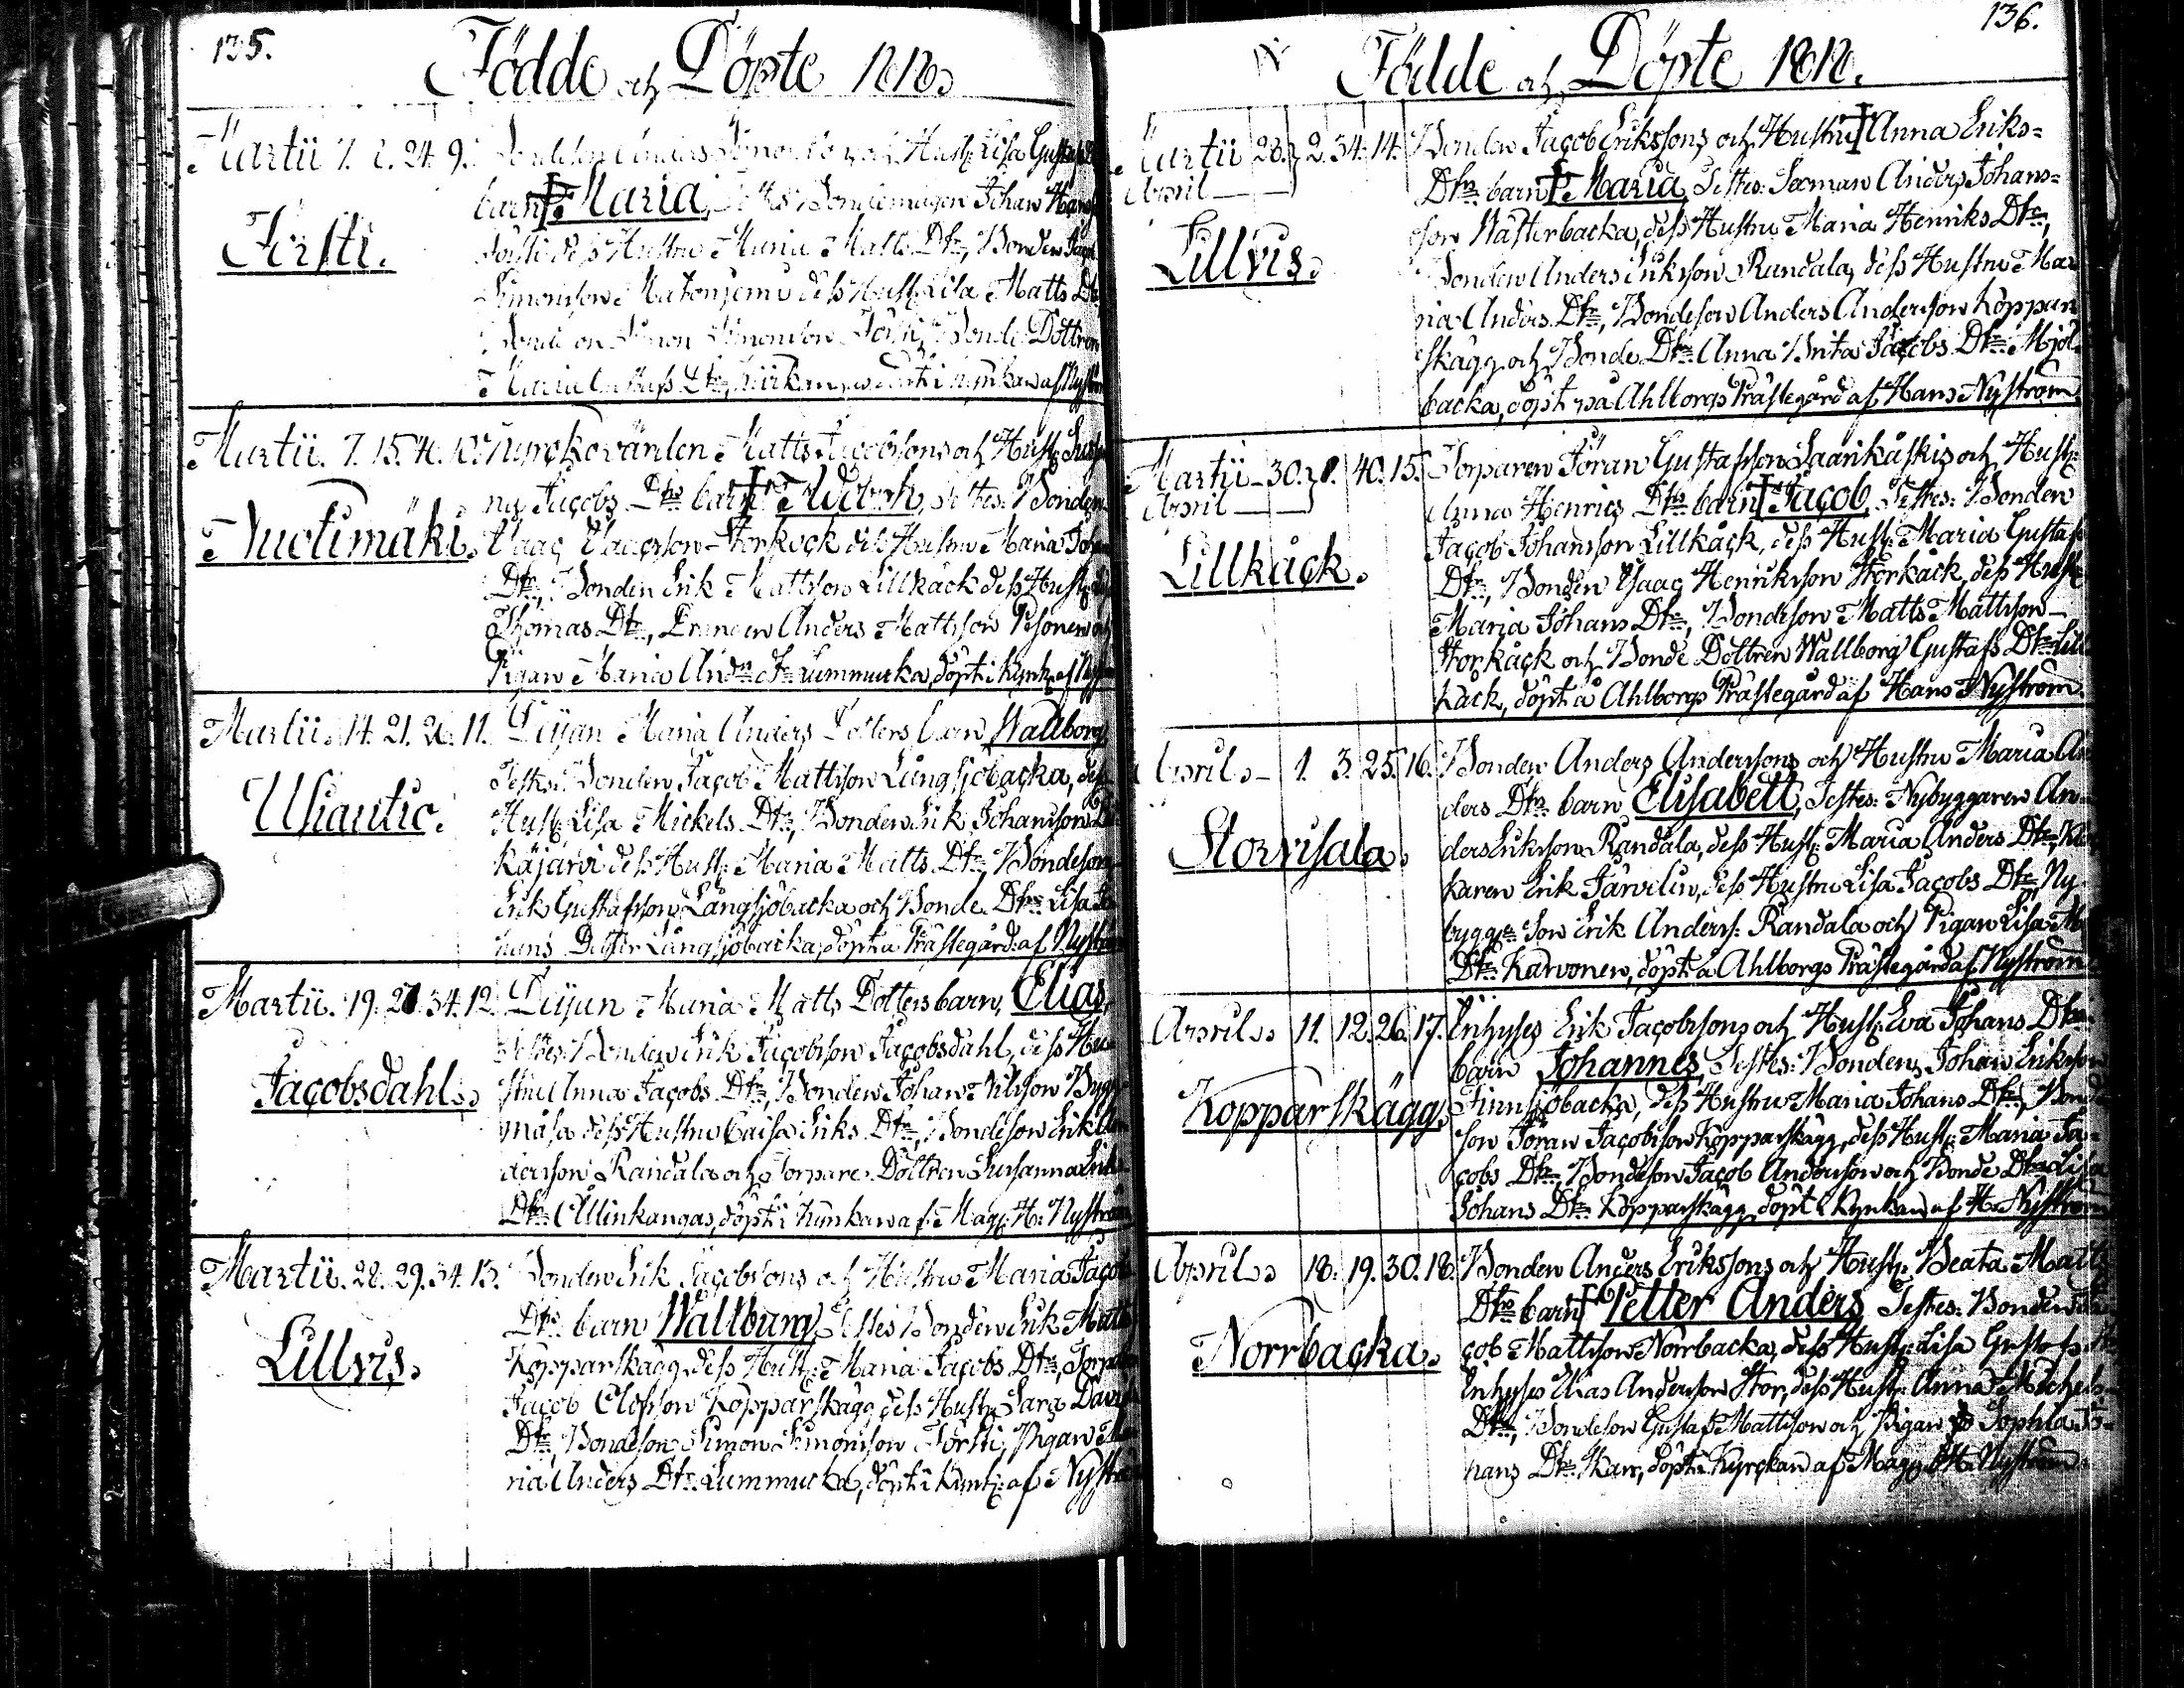 135.
Födde och Döpte 1818.
Martii 7. 8. 24. 9. Bondeson Anders Simonssons och Hust: Lisa Gustafs
barn Maria, Testes: Johan
Försti. Försti dess Hustru Maria Matts Dtr, Bonden
Simonsson dess Hust: Lisa Matts Dtr
Simon Simonsson Försti, Bonde Dottren
Maria döpt i Kyrkan af Nyström
Martii. 7. 15. Kyrkovärden Matts Jacobssons och Hust:
Jacobs Dtrs barn Testes: Bonden
Isaac Isacsson Storkåck dess Hustru Maria
Dtr, Bonden Erik Mattsson Lillkåck dess Hust:
Thomas Dtr, Drengen Anders Mattsson Pesonen och
Pigan Maria And: Dtr Lummucka, döpt i Kyrk: af
Martii. 14. 21. 26. 11. Pijan Maria Anders Dotters barn Wallborg,
Testes: Bonden Jacob Mattsson Långsjöbacka, dess
Uhautio. Hust: Lisa Mickels Dtr, Bonden Erik Johansson
käjärvi dess Hust: Maria Matts Dtr, Bondeson
Erik Gustafsson Långsjöbacka och Bonde Dtr: Lisa Jo-
hans Dotter Långsjöbacka, döpt å Prästegård: af Nyström
Martii. 19. 21. 34. 12. Pijan Maria Matts Dotters barn, Elias,
Testes: Bonden Erik Jacobsson Jacobsdahl, dess Hu-
Jacobsdahl. stru Anna Jacobs Dtr, Bonden Johan Nilsson Bygg-
mäsa dess Hustru Caisa Eriks Dtr, Bondeson Erik An-
dersson Randala och Torpare Dottren Susanna Eriks
Dtr Ullinkangas, döpt i Kyrkan af Mag: H: Nyström
Martii. 28. 29. 34. 13. Bonden Erik Jacobssons och Hustru Maria Jacobs
Dtrs barn Wallburg, Testes Bonden Erik Matts
Lillvis. Kopparskägg, dess Hust: Maria Jacobs Dtr, Torparen
Jacob Elofsson Kopparskägg, dess Hustr Sara Davids
Dtr, Bondeson Simon Simonsson Försti, Pigan Ma-
ria Anders Dtr: Lummucka, döpt i Kyrk: af Nyström
136.
Födde och Döpte 1818.
Martii 28. 2. 34. 14. Bonden Jacob Erikssons och Hustru Anna Eriks-
April Dtrs barn Maria, Testes: Sexman Anders Johans-
Lillvis. son Wästerbacka, dess Hustru Maria Henriks Dtr,
Bonden Anders Eriksson Randala, dess Hustru Ma-
ria Anders Dtr, Bondeson Anders Andersson Koppar-
skägg och Bonde Dtr: Anna Brita Jacobs Dtr: Mjöl-
backa, döpt på Ahlborgs Prästegård af Hans Nyström
Martii 30. 8. 40. 15. Torparen Jöran Gustafsson Saarikåskis och Hust:
April Anna Henrics Dtrs barn Jacob, Testes: Bonden
Lillkåck. Jacob Johansson Lillkåck, dess Hust: Maria Gustafs
Dtr, Bonden Isaac Henriksson Storkåck, dess Hustr
Maria Johans Dtr, Bondeson Matts Mattsson
Storkåck och Bonde Dottren Wallborg Gustafs Dtr Lill-
kåck, döpt å Ahlborgs Prästegård af Hans Nyström
April. 1. 3. 25. 16. Bonden Anders Anderssons och Hustru Maria An-
ders Dtrs barn Elisabett, Testes: Nybyggaren An-
Storrisala. ders Eriksson Randala, dess Hust: Maria Anders Dtr, Kloc-
karen Erik Järvelin, dess Hustru Lisa Jacobs Dtr, Ny-
bygg: Son Erik Anders: Randala och Pigan Lisa
Dtr: Karvonen, döpt å Ahlborgs Prästegård af Nyström
April. 11. 12. 26. 17. Inhyses Erik Jacobssons och Hust: Eva Johans Dtrs
barn Johannes, Testes: Bonden Johan Eriksson
Kopparskägg. Finnsjöbacka, dess Hustru Maria Johans Dtr, Bonde-
son Jöran Jacobsson Kopparskägg, dess Hust: Maria Ja-
cobs Dtr, Bondeson Jacob Andersson och Bonde Dtr: Lisa
Johans Dtr: Kopparskägg, döpt i Kyrkan af H: Nyström
April. 18. 19. 30. 18. Bonden Anders Erikssons och Hust: Beata Matts
Dtrs barn Petter Anders, Testes: Bonden Ja-
Norrbacka. cob Mattsson Norrbacka, dess Hust: Lisa Gustafs
Inhyses Elias Andersson Stor, dess Hust: Anna Michels
Dtr, Bondeson Gustaf Mattsson och Pigan Sophia Jo-
hans Dtr: Skarv, döpt i Kyrckan af Mag: H: Nyström